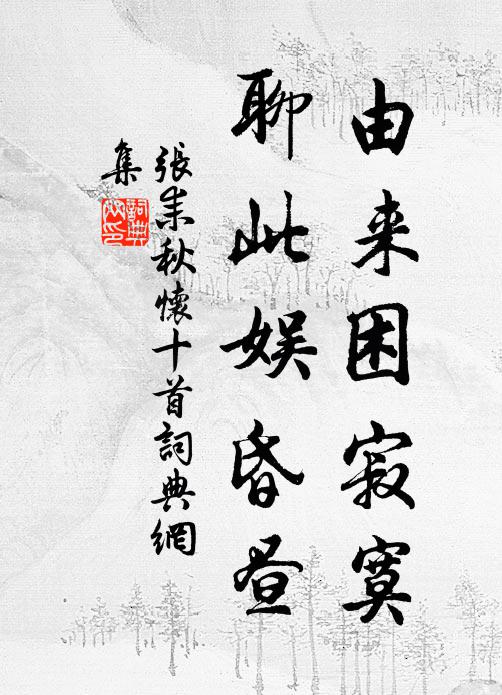 由来困寂寞
聊此娱昏昼
張耒秋懷十首詞典網
集
詞典
网印